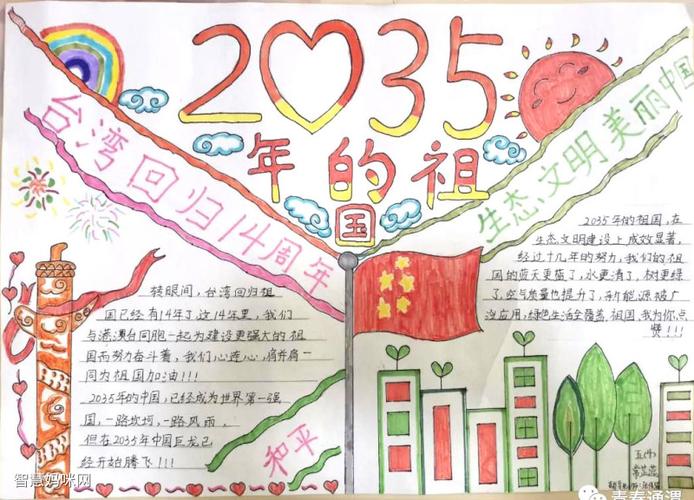 2035
年的祖
国
台湾回归14周年
生态文明美丽中国
转眼间，台湾回归祖
国已经有14年了这14年里，我们
与港澳台同胞一起为建设更强大的祖
国而努力奋斗着，我们心连心，肩并肩一
同为祖国加油！！！
2035年的中国，已经成为世界第一强
国，一路坎坷，一路风雨，
但在2035年中国巨龙已
经开始腾飞！！！
2035年的祖国，在
生态文明建设上成效显著，
经过十几年的努力，我们的祖
国的蓝天更蓝了，水更清了，树更绿
了，空气质量也提升了，新能源被广
泛应用，绿色生活全覆盖祖国，我为你点
赞！！！
和平
五(4)
智慧妈咪网
青春通渭